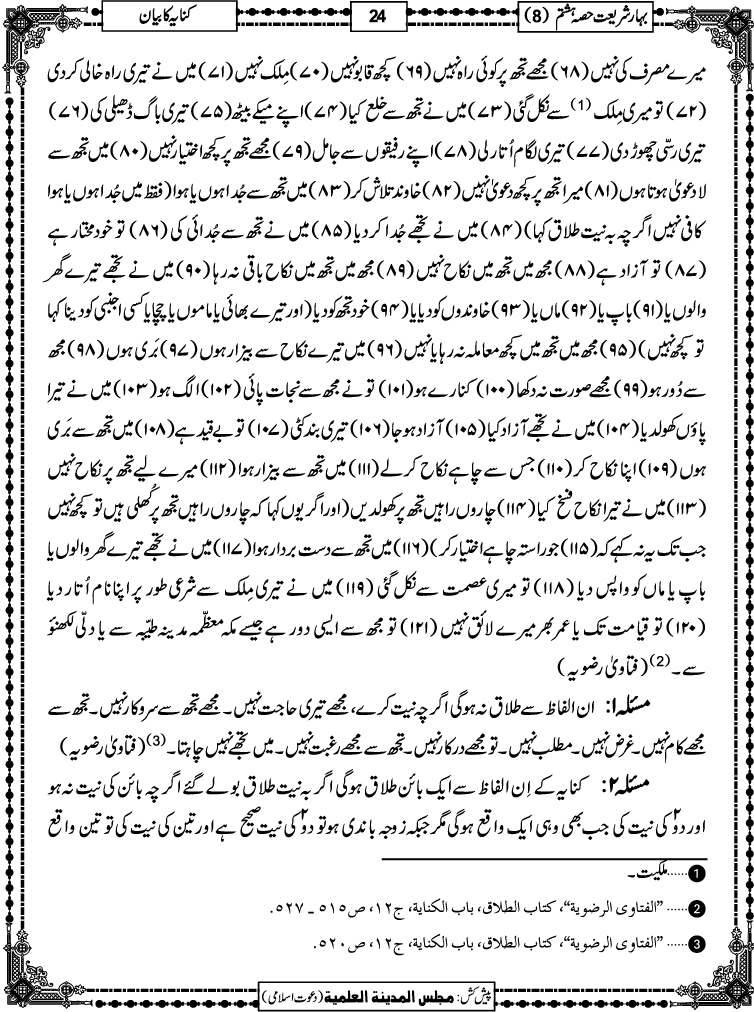 بہار شریعت حصہ ہشتم (8)
24
کنایہ کا بیان
میرے مصرف کی نہیں (۶۸) مجھے تجھ پر کوئی راہ نہیں (۶۹) کچھ قابو نہیں (۷۰) مِلک نہیں (۷۱) میں نے تیری راہ خالی کردی
(۷۲) تو میری مِلک (1) سے نکل گئی (۷۳) میں نے تجھ سے خلع کیا (۷۴) اپنے میکے بیٹھ (۷۵) تیری باگ ڈھیلی کی (۷۶)
تیری رسّی چھوڑ دی (۷۷) تیری لگام اُتار لی (۷۸) اپنے رفیقوں سے جا مل (۷۹) مجھے تجھ پر کچھ اختیار نہیں (۸۰) میں تجھ سے
لا دعویٰ ہوتا ہوں (۸۱) میرا تجھ پر کچھ دعویٰ نہیں (۸۲) خاوند تلاش کر (۸۳) میں تجھ سے جُدا ہوں یا ہوا (فقط میں جُدا ہوں یا ہوا
کافی نہیں اگرچہ بہ نیت طلاق کہا) (۸۴) میں نے تجھے جُدا کر دیا (۸۵) میں نے تجھ سے جُدائی کی (۸۶) تو خود مختار ہے
(۸۷) تو آزاد ہے (۸۸) مجھ میں تجھ میں نکاح نہیں (۸۹) مجھ میں تجھ میں نکاح باقی نہ رہا (۹۰) میں نے تجھے تیرے گھر
والوں یا (۹۱) باپ یا (۹۲) ماں یا (۹۳) خاوندوں کو دیا یا (۹۴) خود تجھ کو دیا (اور تیرے بھائی یا ماموں یا چچا یا کسی اجنبی کو دینا کہا
تو کچھ نہیں) (۹۵) مجھ میں تجھ میں کچھ معاملہ نہ رہا یا نہیں (۹۶) میں تیرے نکاح سے بیزار ہوں (۹۷) بَری ہوں (۹۸) مجھ
سے دُور ہو (۹۹) مجھے صورت نہ دکھا (۱۰۰) کنارے ہو (۱۰۱) تو نے مجھ سے نجات پائی (۱۰۲) الگ ہو (۱۰۳) میں نے تیرا
پاؤں کھولدیا (۱۰۴) میں نے تجھے آزاد کیا (۱۰۵) آزاد ہو جا (۱۰۶) تیری بند کٹی (۱۰۷) تو بے قید ہے (۱۰۸) میں تجھ سے بَری
ہوں (۱۰۹) اپنا نکاح کر (۱۱۰) جس سے چاہے نکاح کرلے (۱۱۱) میں تجھ سے بیزار ہوا (۱۱۲) میرے لیے تجھ پر نکاح نہیں
(۱۱۳) میں نے تیرا نکاح فسخ کیا (۱۱۴) چاروں راہیں تجھ پر کھولدیں (اور اگر یوں کہا کہ چاروں راہیں تجھ پر کُھلی ہیں تو کچھ نہیں
جب تک یہ نہ کہے کہ (۱۱۵) جو راستہ چاہے اختیار کر) (۱۱۶) میں تجھ سے دست بردار ہوا (۱۱۷) میں نے تجھے تیرے گھر والوں یا
باپ یا ماں کو واپس دیا (۱۱۸) تو میری عصمت سے نکل گئی (۱۱۹) میں نے تیری مِلک سے شرعی طور پر اپنا نام اُتار دیا
(۱۲۰) تو قیامت تک یا عمر بھر میرے لائق نہیں (۱۲۱) تو مجھ سے ایسی دور ہے جیسے مکہ معظّمہ مدینہ طیّبہ سے یا دلّی لکھنؤ
سے۔ (2) (فتاویٰ رضویہ)
مسئلہ ۱: ان الفاظ سے طلاق نہ ہوگی اگرچہ نیت کرے، مجھے تیری حاجت نہیں۔ مجھے تجھ سے سروکار نہیں۔ تجھ سے
مجھے کام نہیں۔ غرض نہیں۔ مطلب نہیں۔ تو مجھے درکار نہیں۔ تجھ سے مجھے رغبت نہیں۔ میں تجھے نہیں چاہتا۔ (3) (فتاویٰ رضویہ)
مسئلہ ۲: کنایہ کے اِن الفاظ سے ایک بائن طلاق ہوگی اگر بہ نیت طلاق بولے گئے اگرچہ بائن کی نیت نہ ہو
اور دو۲ کی نیت کی جب بھی وہی ایک واقع ہوگی مگر جبکہ زوجہ باندی ہو تو دو۲ کی نیت صحیح ہے اور تین کی نیت کی تو تین واقع
1 ......ملکیت۔
2 ...... "الفتاوی الرضویة"، کتاب الطلاق، باب الکنایة، ج۱۲، ص۵۱۵ ـ ۵۲۷.
3 ...... "الفتاوی الرضویة"، کتاب الطلاق، باب الکنایة، ج۱۲، ص۵۲۰.
پیش کش: مجلس المدینة العلمیة (دعوت اسلامی)